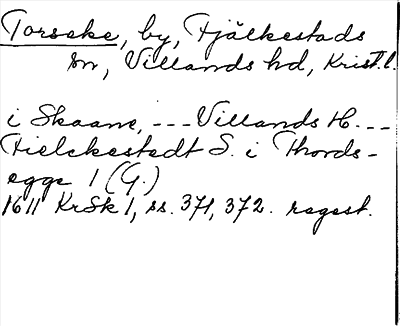 Torseke, by, Fjälkestads
sn, Villands hd, Krist. l.
i Skaane, --- Villands H. ---
Fielckestedt S. i Thords-
egge 1 (G.)
1611 KrSk 1, ss. 371, 372. regest.